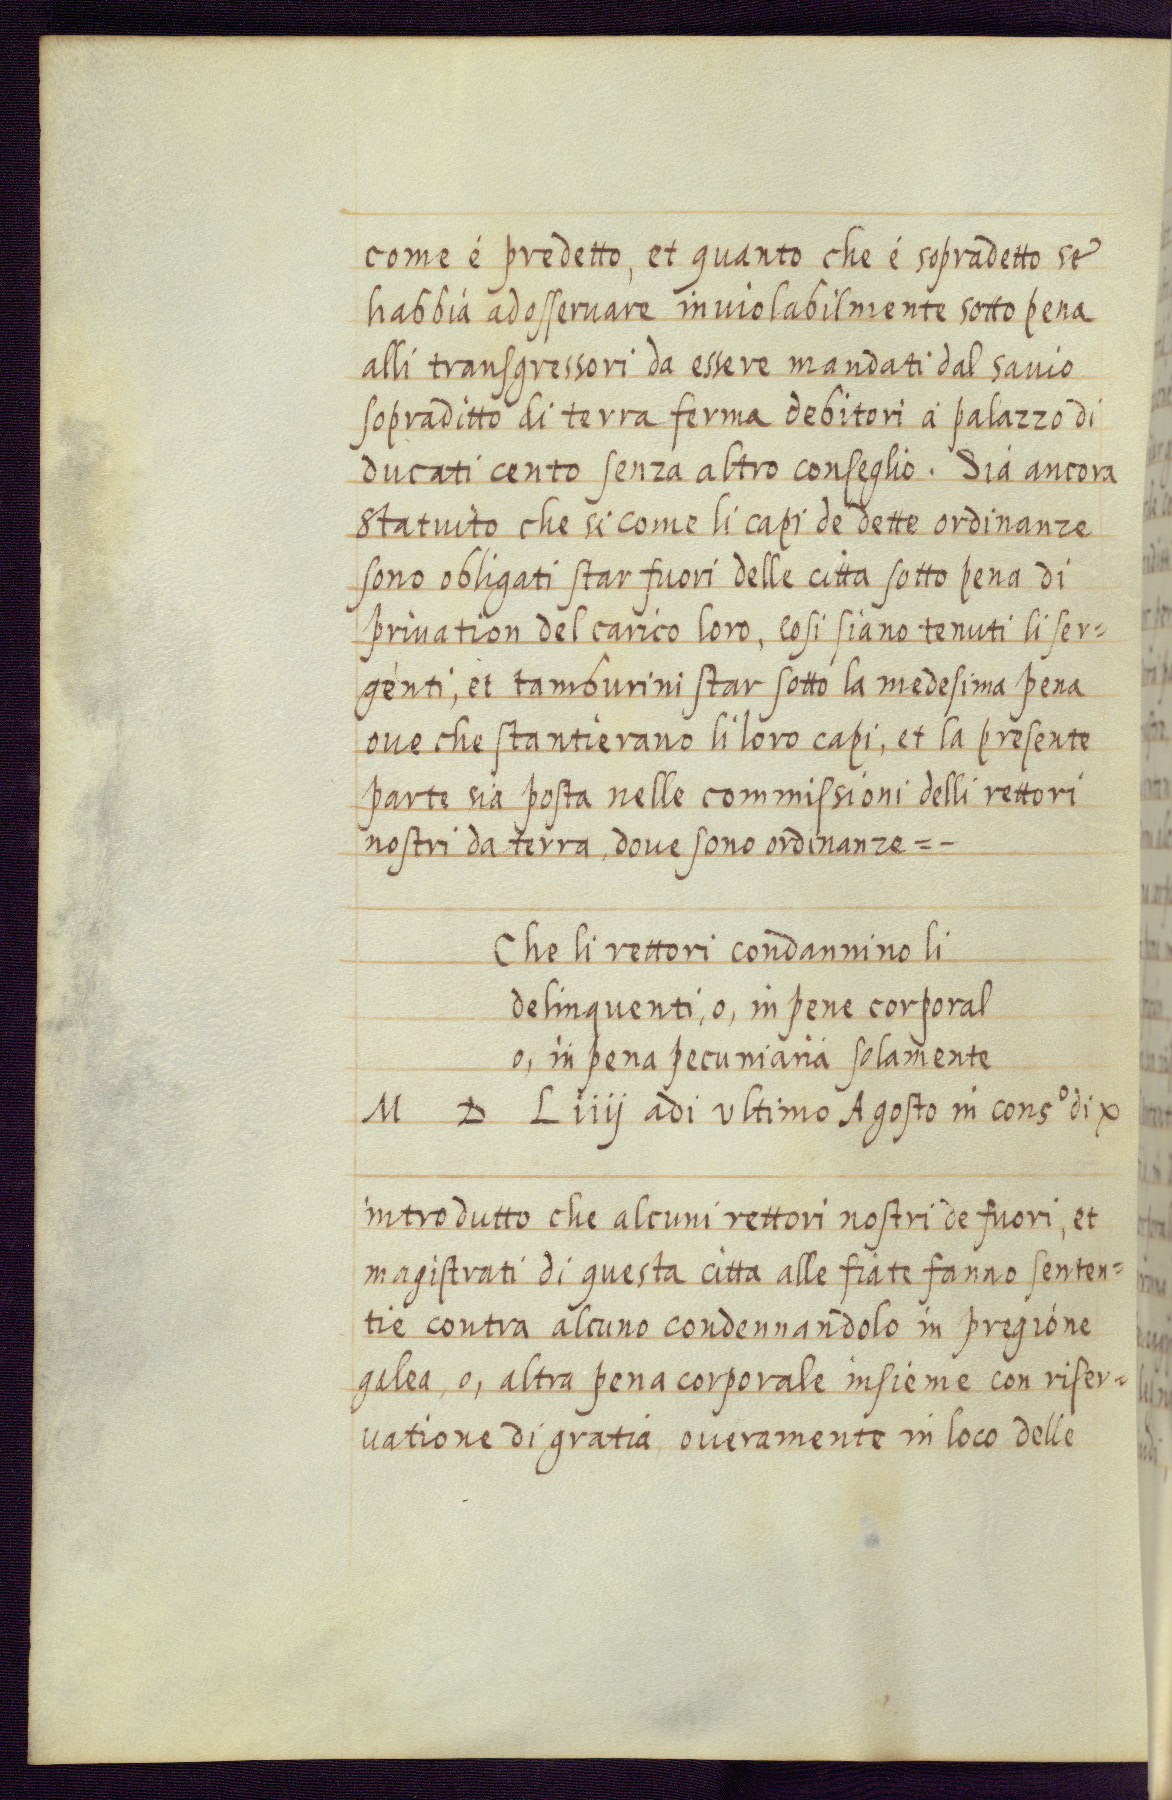 come é predetto, et quanto che é sopradetto se
habbia ad osseruare inuiolabilmente sotto pena
alli transgressori da essere mandati dal sauio
sopraditto di terra ferma debitori á palazzo di
ducati cento senza altro conseglio. Sia ancora
statuito che si come li capi de dette ordinanze
sono obligati star fuori delle citta sotto pena di
priuation del carico loro, Cosi siano tenuti li ser=
genti, et tamburini star sotto la medesima pena
oue che stantierano li loro capi, et la presente
parte sia posta nelle commissioni delli rettori
nostri da terra, doue sono ordinanze=-
Che li rettori condannino li
delinquenti, o, in pene corporal
o, in pena pecuniaria solamente
M D Liiij adi vltimo Agosto in cons.º di x
introdutto che alcuni rettori nostri de fuori, et
magistrati di questa citta alle fiate fanno senten=
tie contra alcuno condennandolo in pregione
galea, o, altra pena corporale insieme con riser=
uatione di gratia, oueramente in loco delle